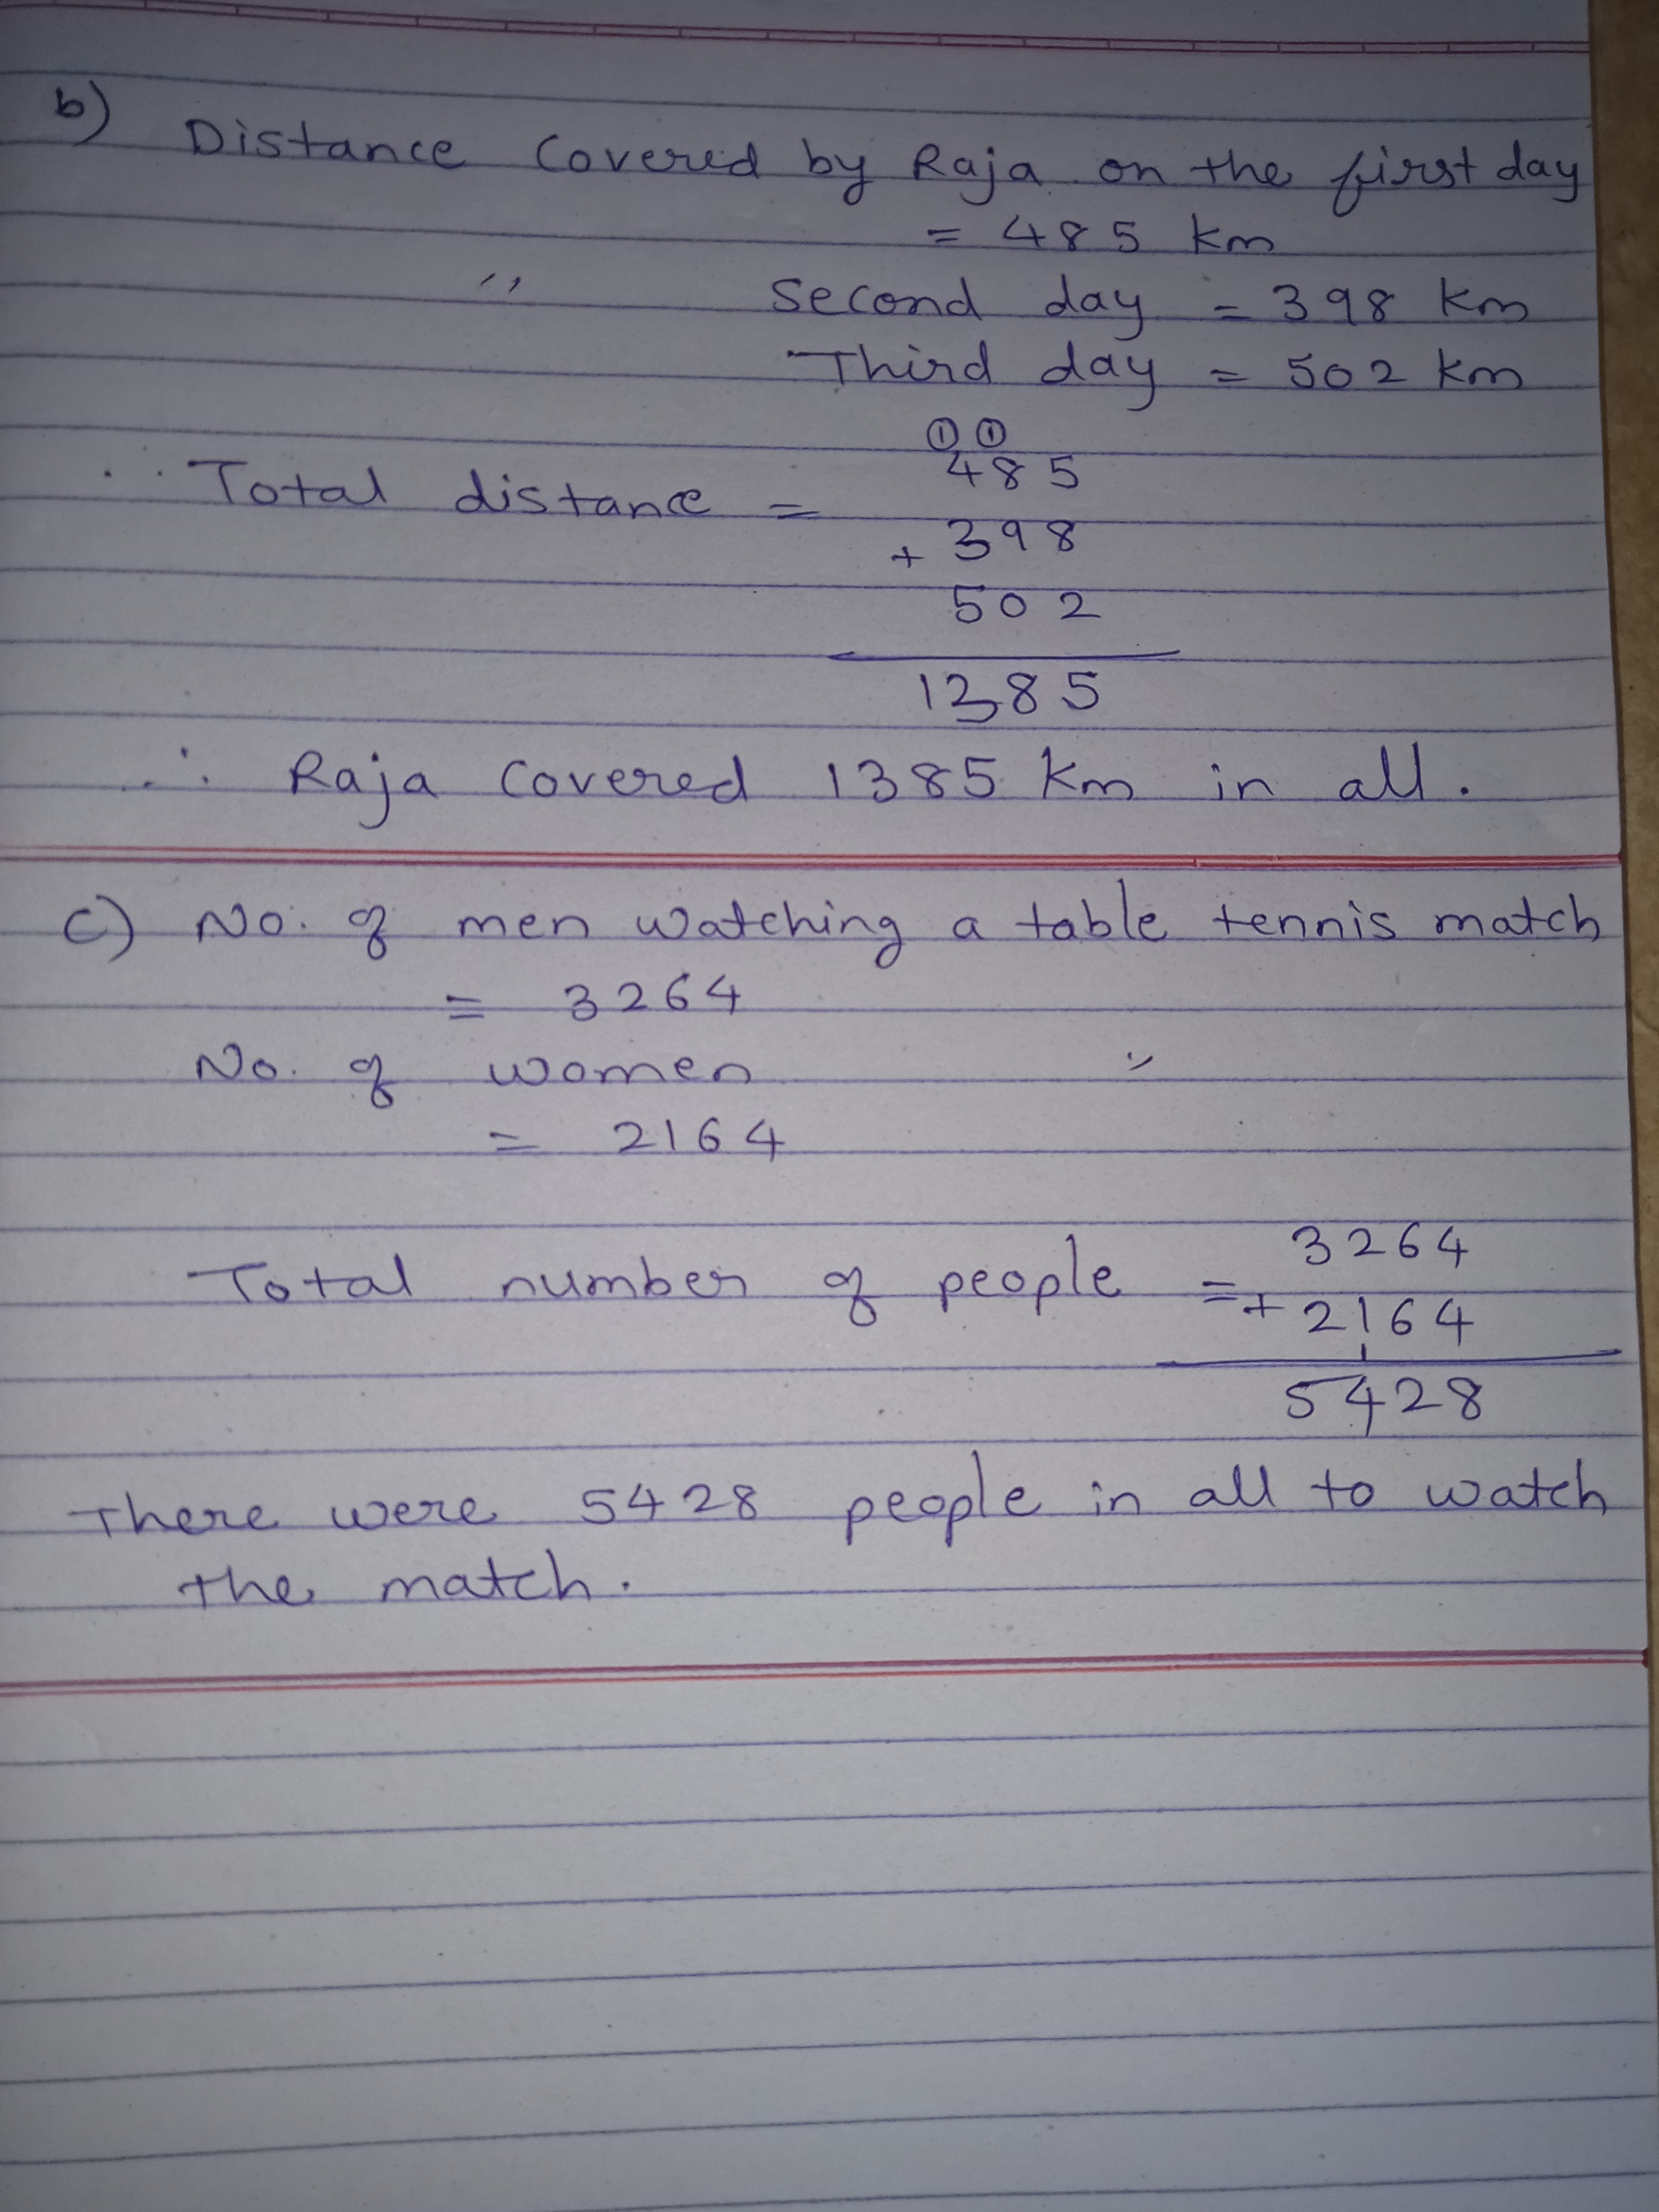 b)
Distance Covered by Raja on the first day
= 485 km
" Second day = 398 km
Third day = 502 km
① ①
∴ Total distance = 485
+ 398
502
1385
∴ Raja Covered 1385 Km in all.
c) No. of men watching a table tennis match
= 3264
No. of women "
= 2164
3264
Total number of people = + 2164
1
5428
There were 5428 people in all to watch
the match.